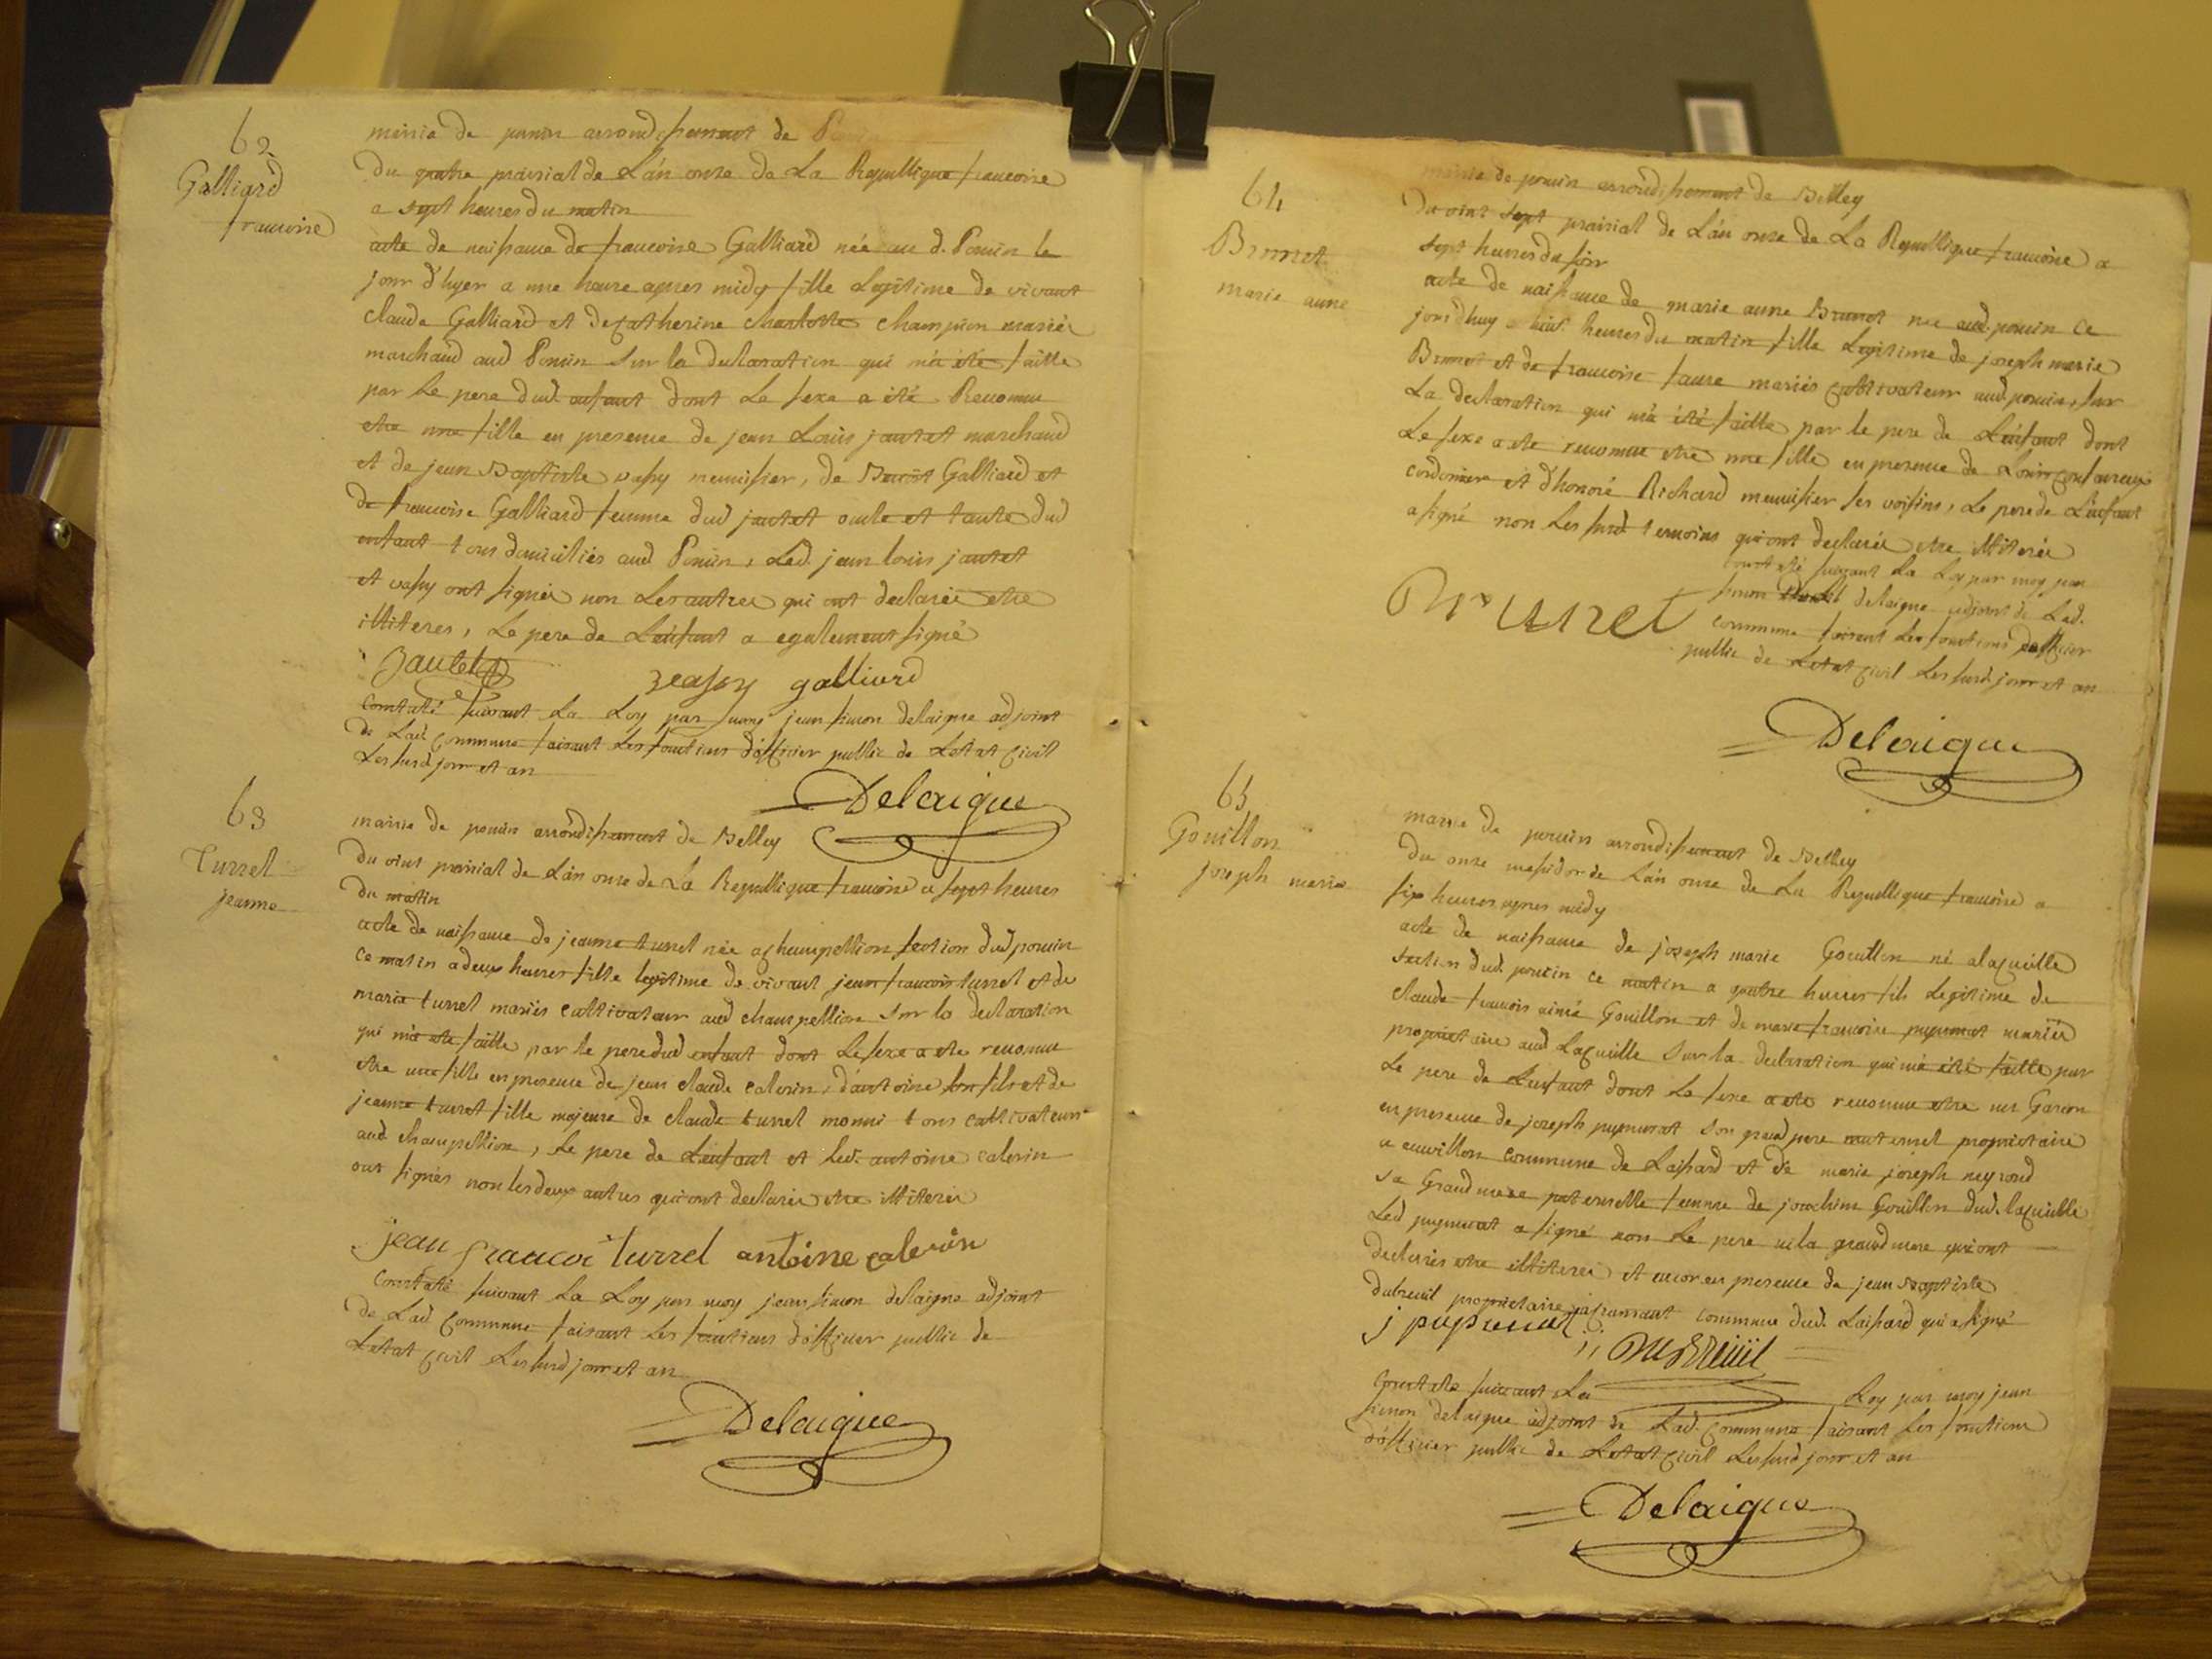 62
Galliard
francoise
mairie de poncin arrondissement de
Du quatre prairial de L'an onze de La Republique francoise
a sept heures du matin
acte de naissance de francoise Galliard née au d. Poncin le
jour d'hyer a une heure apres midy fille Legitime de vivant
claude Galliard et de catherine charlotte champion mariés
marchand aud Poncin sur la declaration qui m'a été faitte
par Le pere dud. enfant dont Le sexe a été Reconnu
etre une fille en presence de jean Louis jantet marchand
et de jean Baptiste vassy menuisier, de Benoit Galliard et
de francoise Galliard femme dud jantet oncle et tante dud
enfant tous domiciliés aud Poncin, Led. jean louis jantet
et vassy ont signés non Les autres qui ont declarés etre
illiteres, Le pere de L'enfant a egalement signé
Jantet vassy galliard
Constaté suivant La Loy par moy jean simon delaigue adjoint
de Lad commune faisant Les fonctions d'officier public de Letat civil
Les susd jour et an
Delaigue
63
Turrel
jeanne
mairie de poncin arrondissement de Belley
Du vint prairial de L'an onze de La Republique francoise a sept heures
du matin
acte de naissance de jeanne turrel née a champellion section dud poncin
ce matin a deux heures fille legitime de vivant jean francois turrel et de
marie turrel mariés cultivateur aud champellion sur la declaration
qui m'a ete faitte par le pere dud enfant dont Le sexe a ete reconnu
etre une fille en presence de jean claude calerin, d'antoine son fils et de
jeanne turrel fille majeure de claude turrel tous cultivateurs
aud champellion, Le pere de L'enfant et led. antoine calerin
ont signés non les deux autres qui ont declarés etre illiterés
jean francoi turrel antoine calerin
Constaté suivant La Loy par moy jean simon delaigue adjoint
de Lad commune faisant Les fonctions d'officier public de
Letat civil Les susd jour et an
Delaigue
64
Brunet
marie anne
mairie de poncin arrondissement de Belley
Du vint sept prairial de L'an onze de La Republique francoise a
sept heures du soir
acte de naissance de marie anne Brunet née aud. poncin ce
jourdhuy a huit heures du matin fille Legitime de joseph marie
Brunet et de francoise faure mariés cultivateur aud. poncin, sur
La declaration qui m'a été faitte par le pere de L'enfant dont
Le sexe a ete reconnu etre une fille en presence de Louis
cordonier et d'honoré Richard menuisier ses voisins, Le pere de L'enfant
a signé non Les susd temoins qui ont declarés etre illiterés
Brunet
constaté suivant La Loy par moy jean
simon delaigue adjoint de Lad.
commune faisant Les fonctions d'officier
public de Letat civil Les susd jour et an
Delaigue
65
Gouillon
joseph marie
mairie de poncin arrondissement de Belley
Du onze messidor de L'an onze de La Republique francoise a
six heures apres midy
acte de naissance de joseph marie Gouillon né a lacueille
section dud. poncin ce matin a quatre heures fils Legitime de
claude francois aimé Gouillon et de marie francoise mariés
proprietaire aud Lacueille sur la declaration qui m'a été faitte par
Le pere de L'enfant dont Le sexe a ete reconnu etre un Garcon
en presence de joseph son grand pere maternel proprietaire
a commune de Laissard et de marie joseph neyrond
sa Grand mere paternelle femme de joachim Gouillon dud. lacueille
Led a signé non Le pere ni la grand mere qui ont
declarés etre illiterés et encor en presence de jean Baptiste
dubreuil proprietaire commune dud. Laissard qui a signé
Dubreüil
Constaté suivant La Loy par moy jean
simon delaigue adjoint de Lad. commune faisant Les fonctions
d'officier public de Letat civil Les susd jour et an
Delaigue